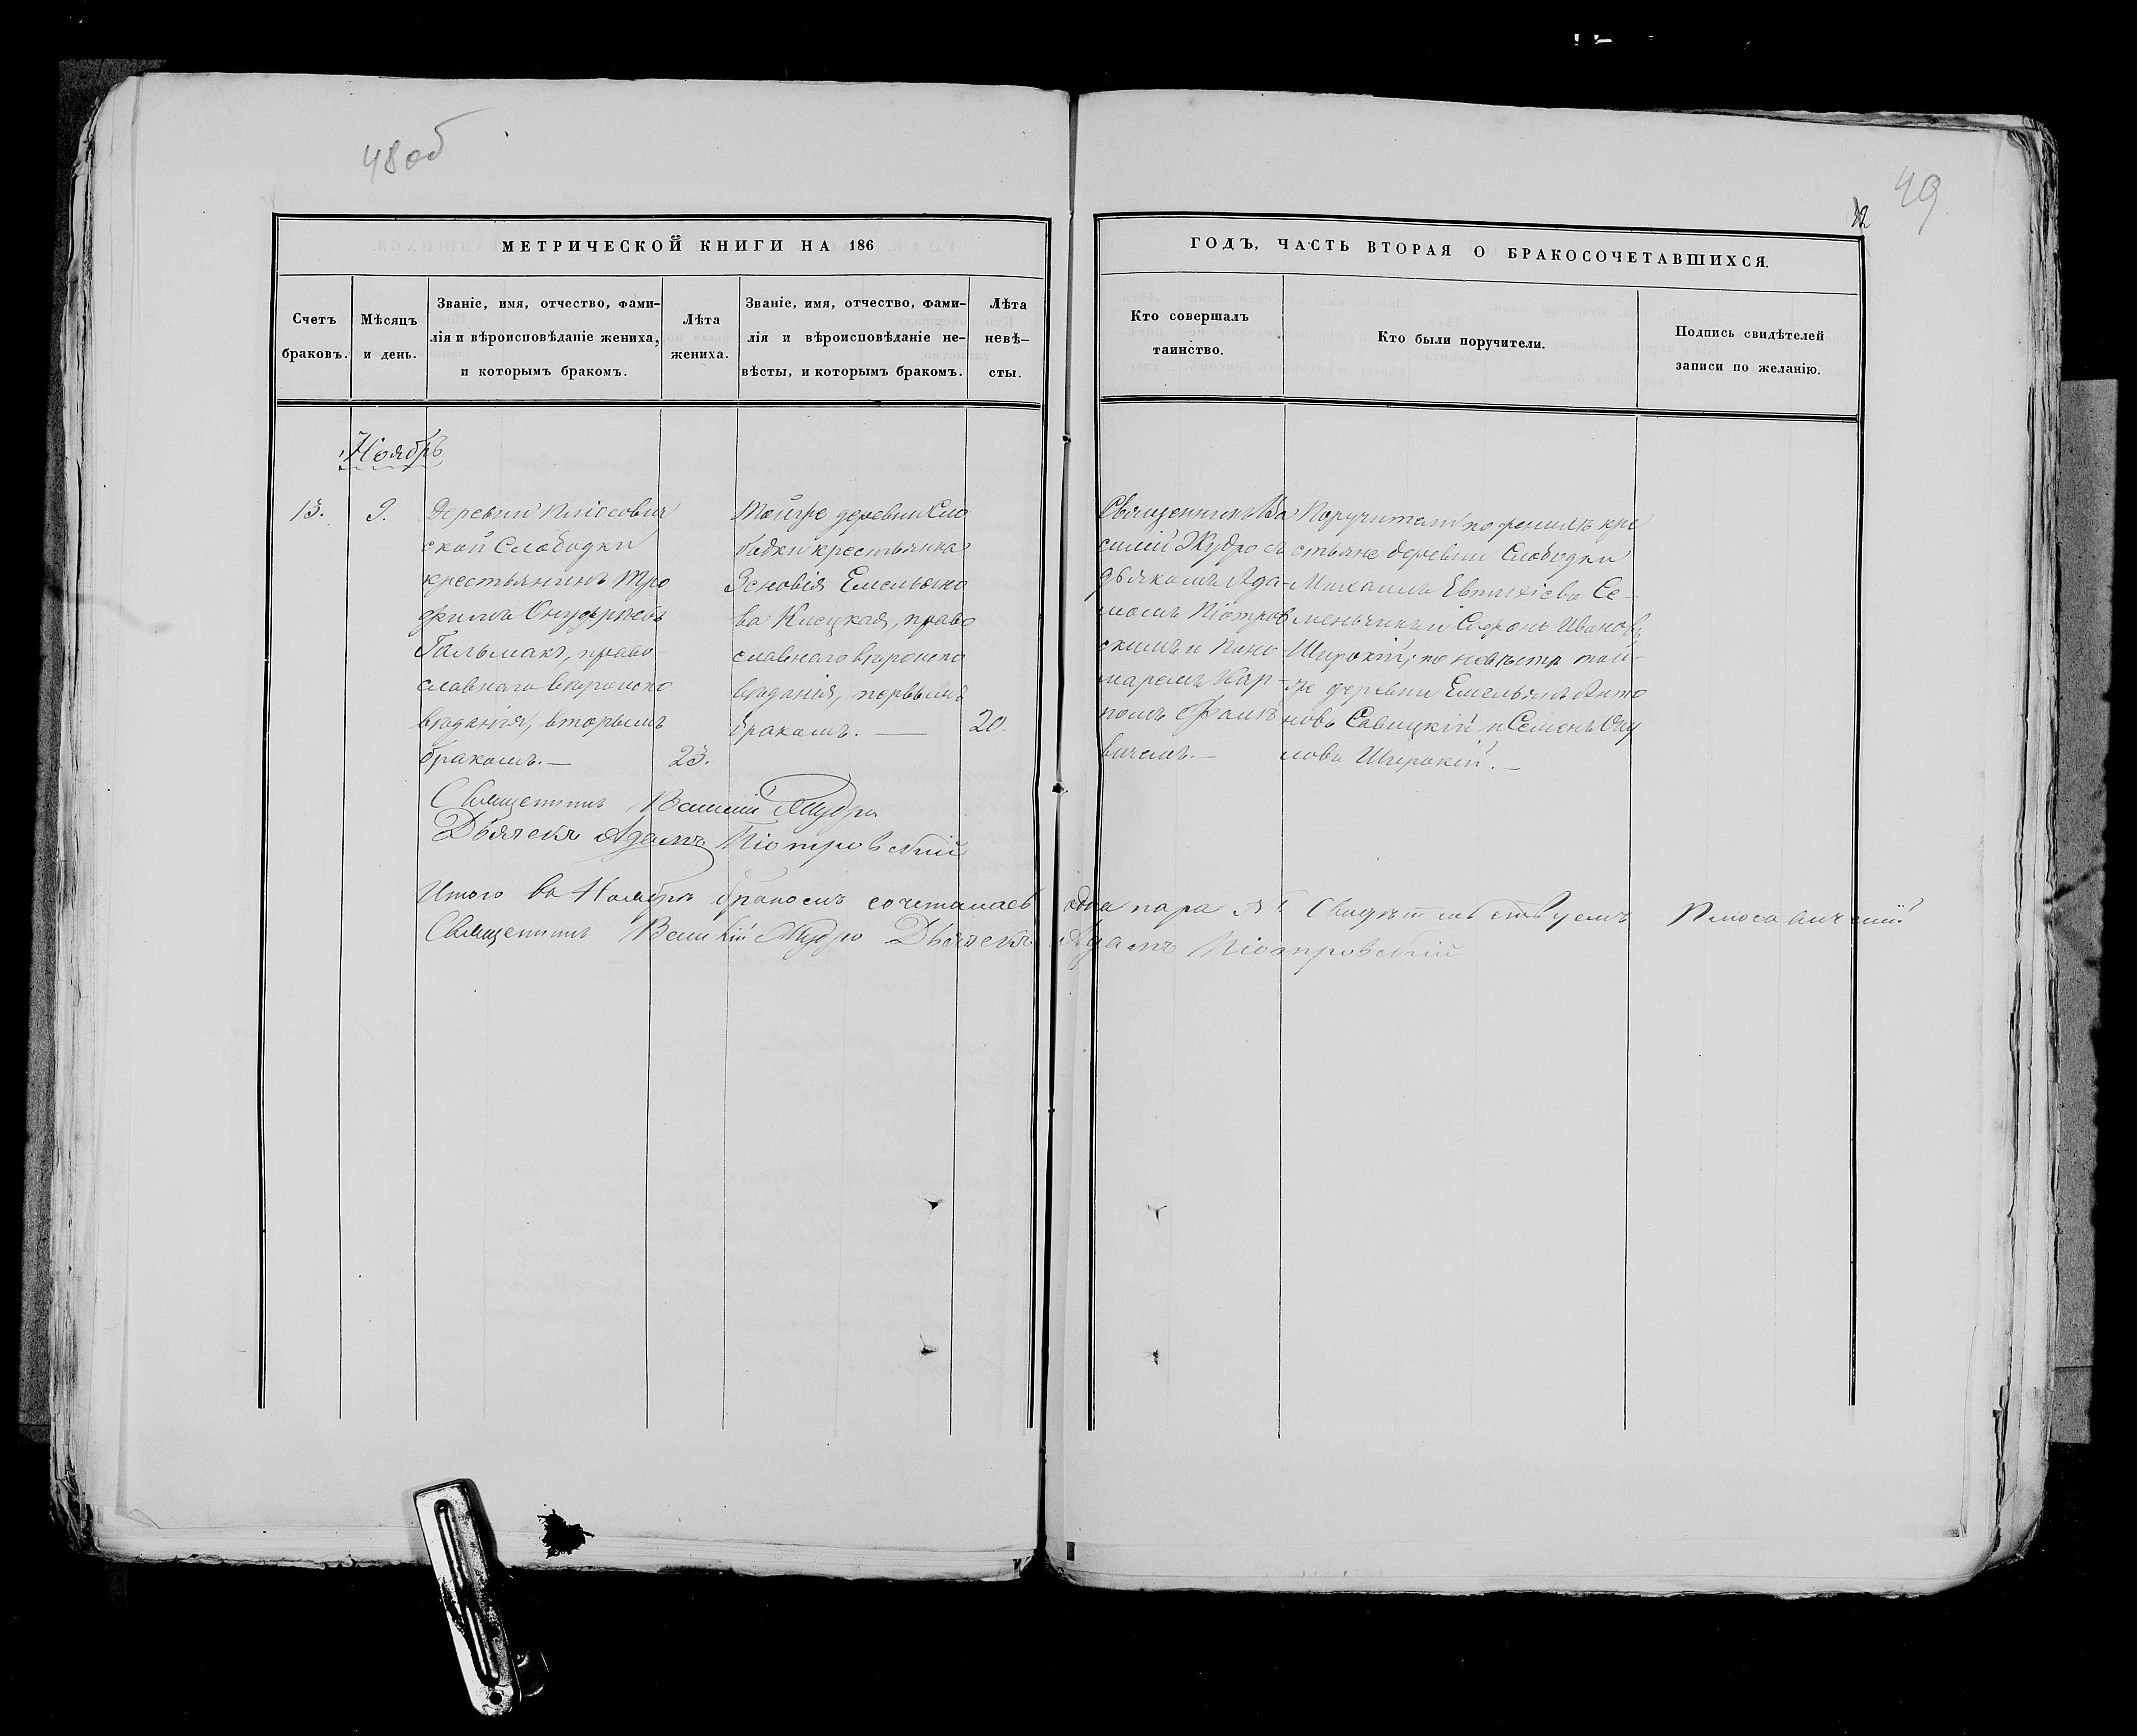 48 об
49
12
МЕТРИЧЕСКОЙ КНИГИ НА 186
ГОДЪ, ЧАСТЬ ВТОРАЯ О БРАКОСОЧЕТАВШИХСЯ.
Счетъ
браковъ.
Мѣсяцъ
и день.
Званіе, имя, отчество, фами-
лія и вѣроисповѣданіе жениха,
и которымъ бракомъ.
Лѣта
жениха.
Званіе, имя, отчество, фами-
лія и вѣроисповѣданіе не-
вѣсты, и которымъ бракомъ.
Лѣта
невѣ-
сты.
Кто совершалъ
таинство.
Кто были поручители.
Подпись свидѣтелей
записи по желанію.
Ноябрь
13.
9.
Деревни Плюсович
ской Слободки
крестьянинъ Тро
фимъ Онуфріевъ
Гальмакъ, право-
славнаго вѣроиспо
вѣданія, вторымъ
бракомъ.—
23.
Тойже деревни Сло
бодки крестьянка
Зеновія Емельяно
ва Клецкая, право
славнаго вѣроиспо
вѣданія, первымъ
бракомъ. —
20.
Священникъ Ва
силій Жудро съ
дьякомъ Ада-
момъ Піотров
скимъ и Поно
маремъ Кар-
помъ
вичемъ.—
Поручители по женихѣ кре
стьяне деревни Слободки
Михаилъ Евтихіевъ Се-
меньчикъ и Софронъ Ивановъ
Широкій; по невѣстѣ той-
же деревни Емельянъ Анто
новъ Савицкій и Семенъ
Широкій.—
Священникъ Василій Жудро
Дьячекъ Адамъ Піотровскій
Итого въ Ноябрѣ бракомъ сочеталась одна пара Свидѣтельствуемъ
Священникъ Василій Жудро Дьячекъ Адамъ Піотровскій